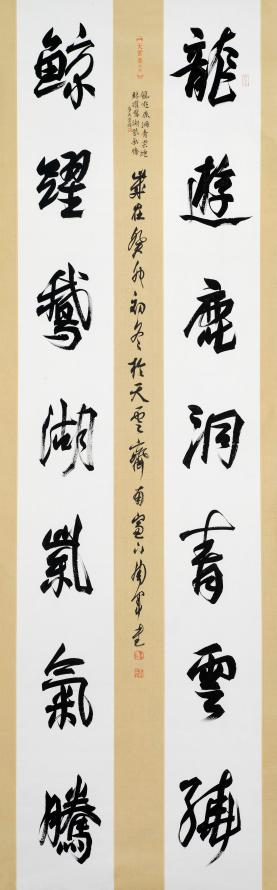 龍遊鹿洞青雲
鯨躍鵝湖紫氣騰
歲在癸卯初冬於天雲齋